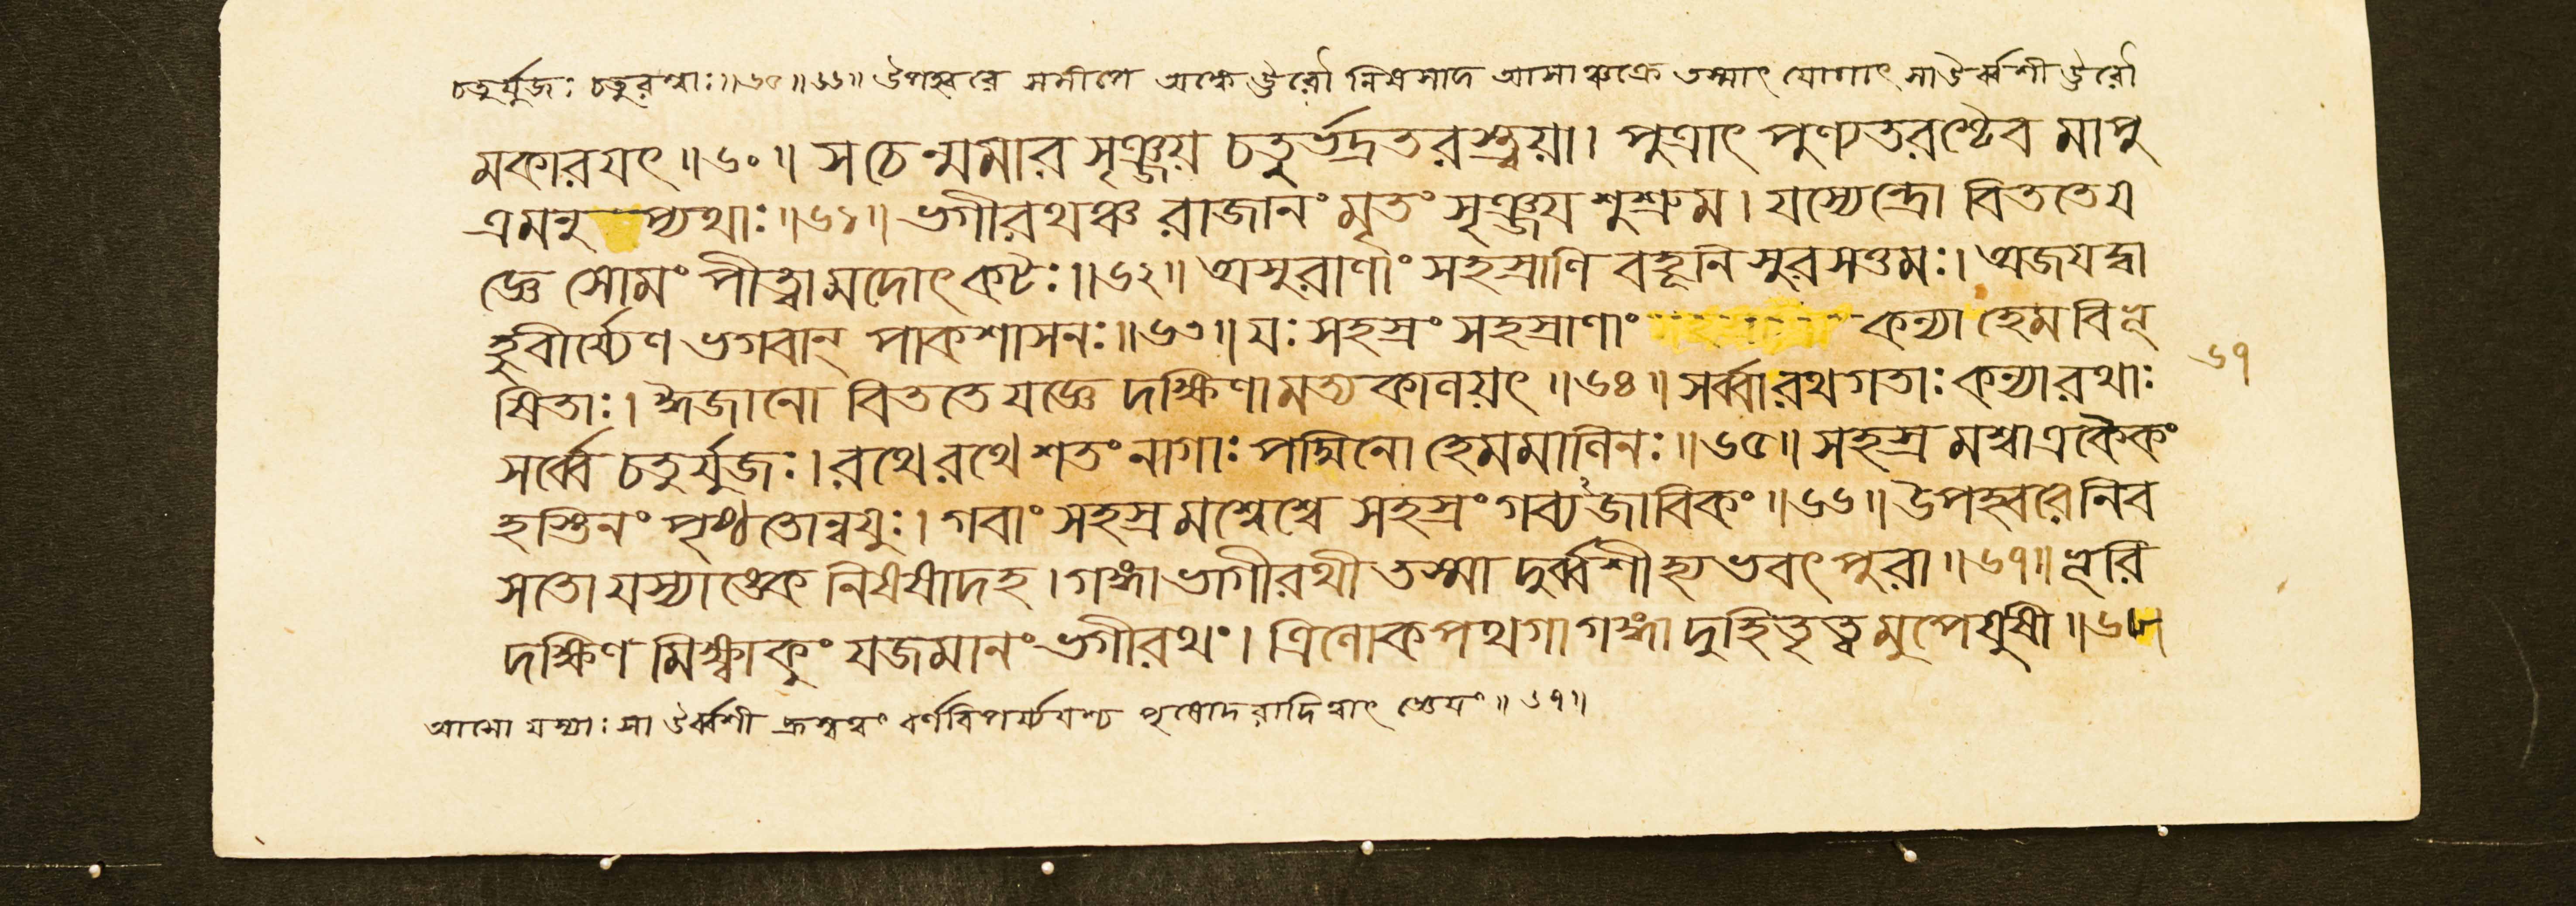 চতুর্যুজঃ চতুরশ্বাঃ॥৬৫॥৬৬॥ উপহ্বরে সমীপে অঙ্কে ঊরৌ নিষসাদ আসাঞ্চক্রে তস্মাৎ যোগাৎ সা উর্ব্বশী ঊরৌ
মকারযৎ॥৬০॥ স চেন্মমার সৃঞ্জয় চতুর্ভদ্রতরস্ত্বয়া। পুত্রাৎ পুণ্যতরশ্চৈব মা পু
ত্রমনু তপ্যথাঃ॥৬১॥ ভগীরথঞ্চ রাজানং মৃতং সৃঞ্জয শুশ্রুম। যস্যেন্দ্রো বিততে য
জ্ঞে সোমং পীত্বা মদোৎকটঃ॥৬২॥ অসুরাণাং সহস্রাণি বহূনি সুরসত্তমঃ। অজযদ্বা
হুবীর্য্যেণ ভগবান্ পাকশাসনঃ॥৬৩॥ যঃ সহস্রং সহস্রাণাং কন্যা হেমবিভূ
ষিতাঃ। ঈজানো বিততে যজ্ঞে দক্ষিণামত্যকালয়ৎ॥৬৪॥ সর্ব্বা রথগতাঃ কন্যা রথাঃ
সর্ব্বে চতুর্যুজঃ। রথে রথে শতং নাগাঃ পদ্মিনো হেমমালিনঃ॥৬৫॥ সহস্রমশ্বা একৈকং
হস্তিনং পৃষ্ঠতোন্বযুঃ। গবাং সহস্রমশ্বেশ্বে সহস্রং গব্যজাবিকং॥৬৬॥ উপহ্বরে নিব
সতো যস্যাঙ্কে নিষষাদ হ। গঙ্গা ভাগীরথী তস্মাদুর্ব্বশী হ্যভবৎ পুরা॥৬৭॥ ভূরি
দক্ষিণমিক্ষ্বাকুং যজমানং ভগীরথং। ত্রিলোকপথগা গঙ্গা দুহিতৃত্বমুপেযুষী॥৬৮॥
বাসো যস্যাঃ সা উর্ব্বশী হ্রস্বত্বং বর্ণবিপর্য্যযশ্চ পৃষোদরাদিত্বাৎ জ্ঞেযং॥৬৭॥
৬৭